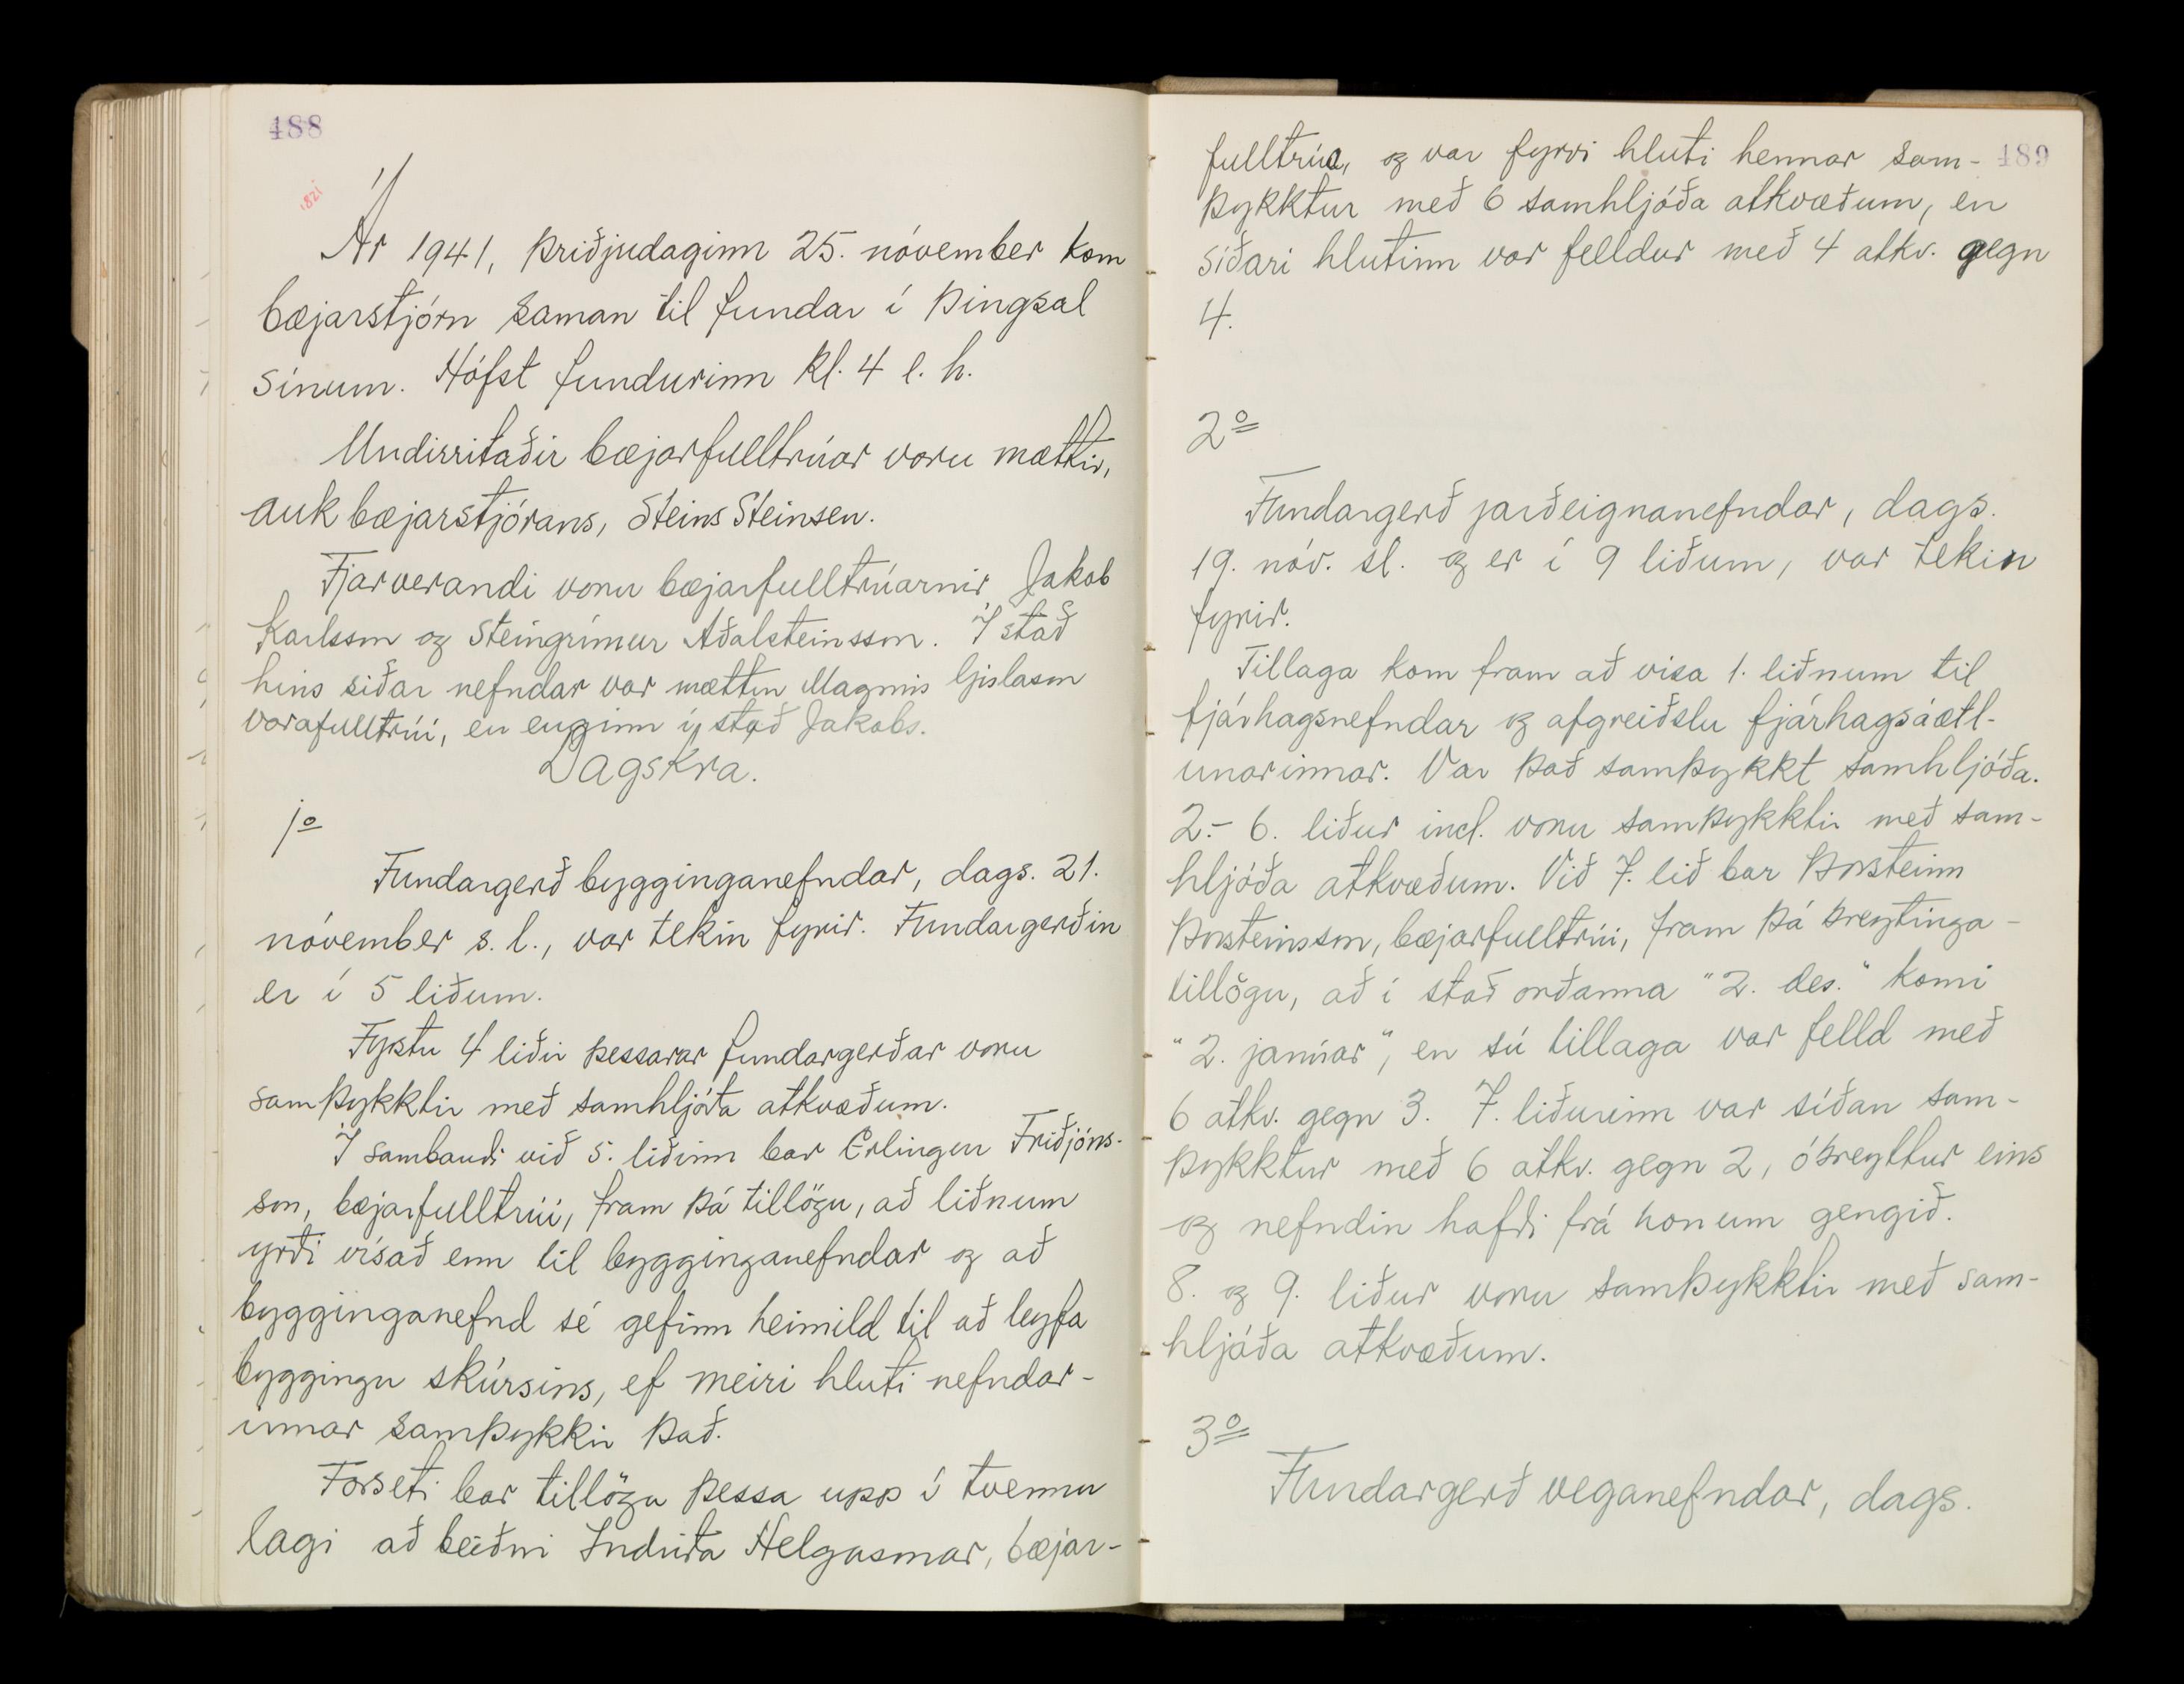 488
1821
Ár 1941, þriðjudaginn 25. nóvember kom
bæjarstjórn saman til fundar í þingsal
sínum. Hófst fundurinn kl. 4 e. h.
Undirritaðir bæjarfulltrúar voru mættir,
auk bæjarstjórans, Steins Steinsen.
Fjarverandi voru bæjarfulltrúarnir Jakob
Karlsson og Steingrímur Aðalsteinsson. Í stað
hins síðar nefndar var mættur Magnús Gíslason
varafulltrúi, en enginn í stað Jakobs.
Dagskra.
1o
Fundargerð bygginganefndar, dags. 21.
nóvember s. l., var tekin fyrir. Fundargerðin
er í 5 liðum.
Fyrstu 4 liðir þessarar fundargerðar voru
samþykktir með samhljóða atkvæðum.
Í sambandi við 5. liðinn bar Erlingur Friðjóns-
son, bæjarfulltrúi, fram þá tillögu, að liðnum
yrði vísað enn til bygginganefndar og að
bygginganefnd sé gefinn heimild til að leyfa
byggingu skúrsins, ef meiri hluti nefndar-
innar samþykkir það.
Forseti bar tillögu þessa upp í tvennu
lagi að beiðni Indriða Helgasonar, bæjar-
489
fulltrúa, og var fyrri hluti hennar sam-
þykktur með 6 samhljóða atkvæðum, en
síðari hlutinn var felldur með 4 atkv. gegn
4.
2o
Fundargerð jarðeignanefndar, dags.
19. nóv. sl. og er í 9 liðum, var tekin
fyrir.
Tillaga kom fram að vísa 1. liðnum til
fjárhagsnefndar og afgreiðslu fjárhagsáætl-
unarinnar. Var það samþykkt samhljóða.
2.- 6. liður incl. voru samþykktir með sam-
hljóða atkvæðum. Við 7. lið bar Þorsteinn
Þorsteinsson, bæjarfulltrúi, fram þá breytinga-
tillögu, að í stað orðanna "2. des." komi
"2. janúar", en sú tillaga var felld með
6 atkv. gegn 3. 7. liðurinn var síðan sam-
þykktur með 6 atkv. gegn 2, óbreyttur eins
og nefndin hafði frá honum gengið.
8. og 9. liður voru samþykktir með sam-
hljóða atkvæðum.
3o
Fundargerð veganefndar, dags.